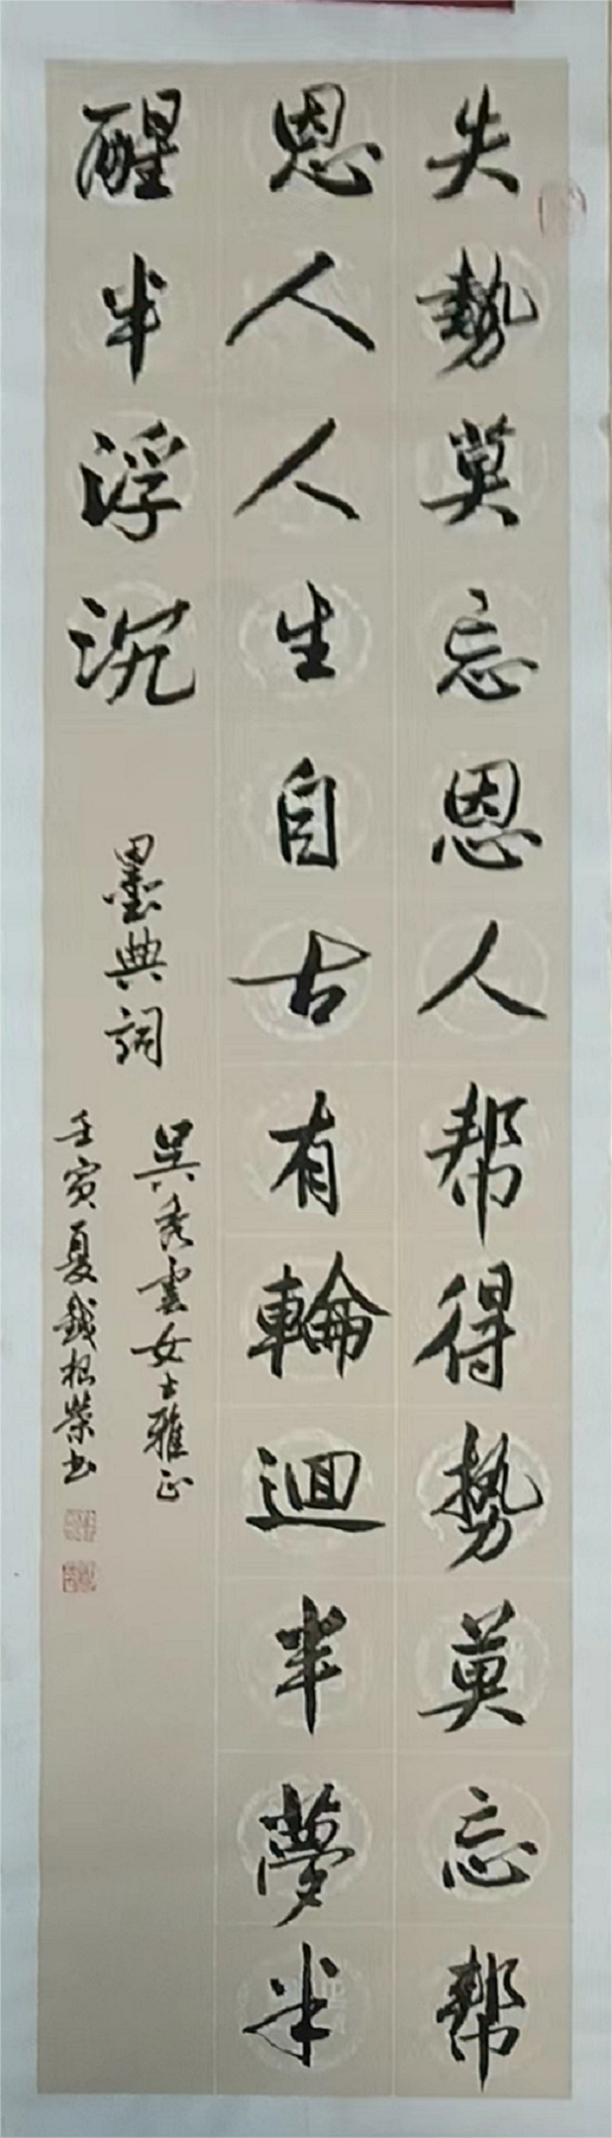 失勢莫忘恩人帮得勢莫忘帮
恩人人生自古有輪迴半夢半
醒半浮沉
墨典詞
吳秀雲女士雅正
壬寅夏錢根榮書